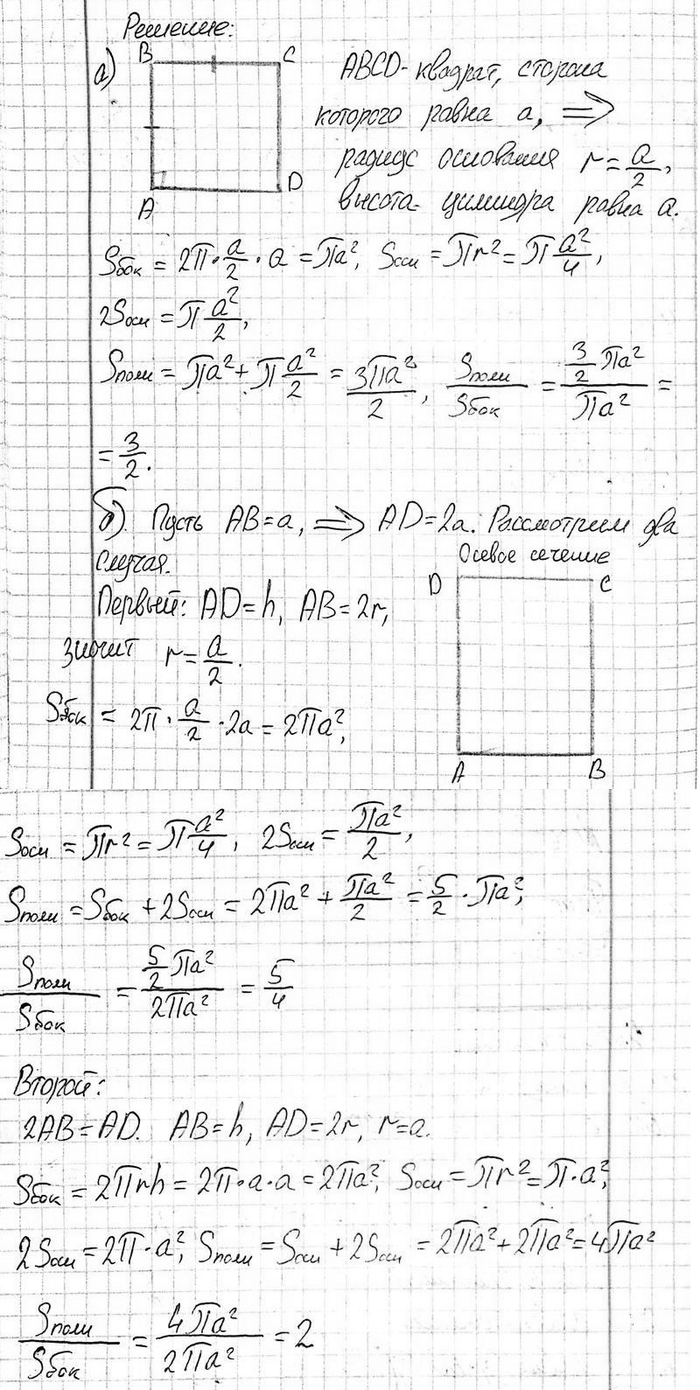 Решение:
а)
B C
A D
ABCD- квадрат, сторона
которого равна a, ⇒
радиус основания r = a/2,
высота цилиндра равна a.
Sбок = 2π · a/2 · a = πa², Sосн = πr² = π a²/4,
2Sосн = π a²/2,
Sполн = πa² + π a²/2 = 3πa²/2, Sполн/Sбок = 3/2 πa² / πa² =
= 3/2.
б) Пусть AB = a, ⇒ AD = 2a. Рассмотрим два
случая.
Осевое сечение
D C
A B
Первый: AD = h, AB = 2r,
значит r = a/2.
Sбок = 2π · a/2 · 2a = 2πa²,
Sосн = πr² = π a²/4, 2Sосн = πa²/2,
Sполн = Sбок + 2Sосн = 2πa² + πa²/2 = 5/2 · πa²,
Sполн/Sбок = 5/2 πa² / 2πa² = 5/4
Второй:
2AB = AD. AB = h, AD = 2r, r = a.
Sбок = 2πrh = 2π · a · a = 2πa², Sосн = πr² = π · a²,
2Sосн = 2π · a², Sполн = Sосн + 2Sосн = 2πa² + 2πa² = 4πa²
Sполн/Sбок = 4πa² / 2πa² = 2